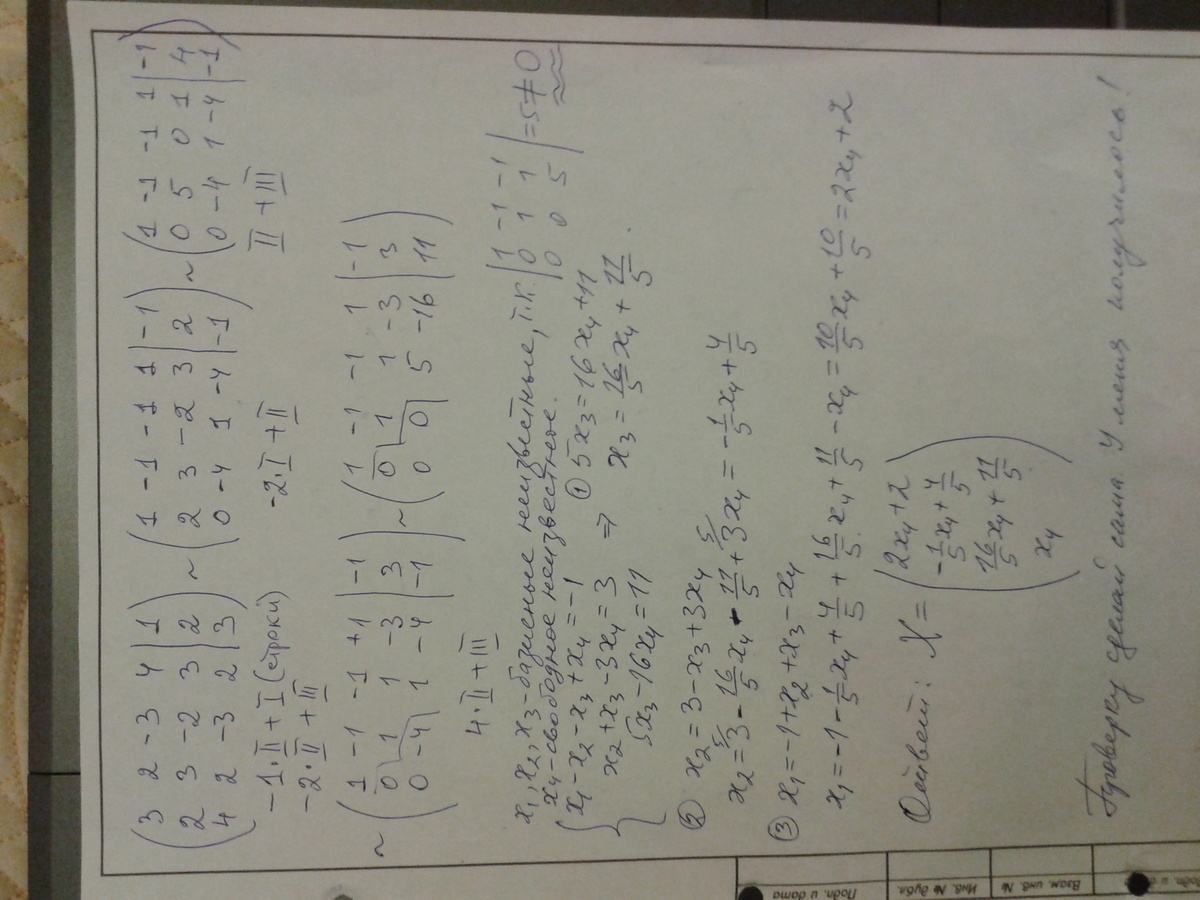 (3 2 -3 4 | 1) ~ (1 -1 -1 1 | -1) ~ (1 -1 -1 1 | -1)
(2 3 -2 3 | 2) (2 3 -2 3 | 2) (0 5 0 1 | 4)
(4 2 -3 2 | 3) (0 -4 1 -4 | -1) (0 -4 1 -4 | -1)
-1·II + I (строки) -2·I + II II + III
-2·II + III
~ (1 -1 -1 +1 | -1) ~ (1 -1 -1 1 | -1)
(0 1 1 -3 | 3) (0 1 1 -3 | 3)
(0 -4 1 -4 | -1) (0 0 5 -16 | 11)
4·II + III
x₁, x₂, x₃ - базисные неизвестные, т.к. |1 -1 -1; 0 1 1; 0 0 5| = 5 ≠ 0
x₄ - свободное неизвестное.
{ x₁ - x₂ - x₃ + x₄ = -1 ① 5x₃ = 16x₄ + 11
x₂ + x₃ - 3x₄ = 3 ⇒ x₃ = 16/5 x₄ + 11/5.
5x₃ - 16x₄ = 11
② x₂ = 3 - x₃ + 3x₄
x₂ = 3 - 16/5 x₄ - 11/5 + 3x₄ = -1/5 x₄ + 4/5
③ x₁ = -1 + x₂ + x₃ - x₄
x₁ = -1 - 1/5 x₄ + 4/5 + 16/5 x₄ + 11/5 - x₄ = 10/5 x₄ + 10/5 = 2x₄ + 2
Ответ: X = (2x₄ + 2
-1/5 x₄ + 4/5
16/5 x₄ + 11/5
x₄)
Проверку сделай сама. У меня получилось!
Подп. и дата
Инв. № дубл.
Взам. инв. №
Подп. и дата